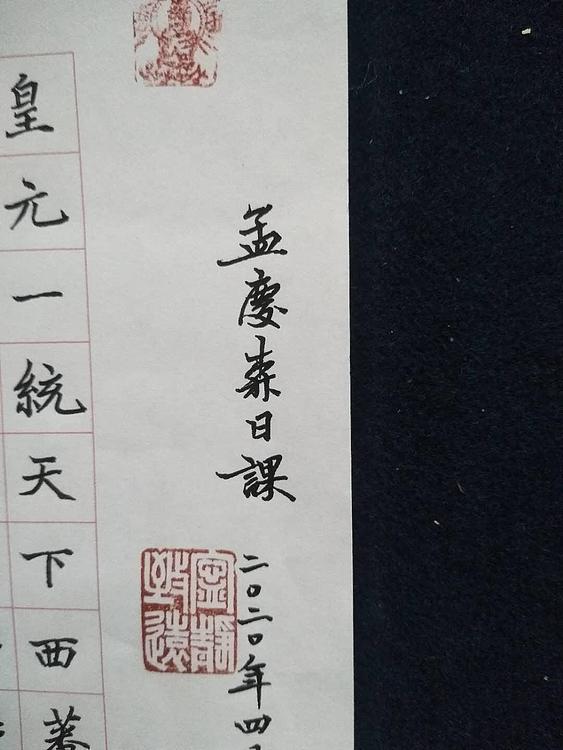 孟慶森日課
二〇二〇年四
寧靜致遠
皇元一統天下西蕃